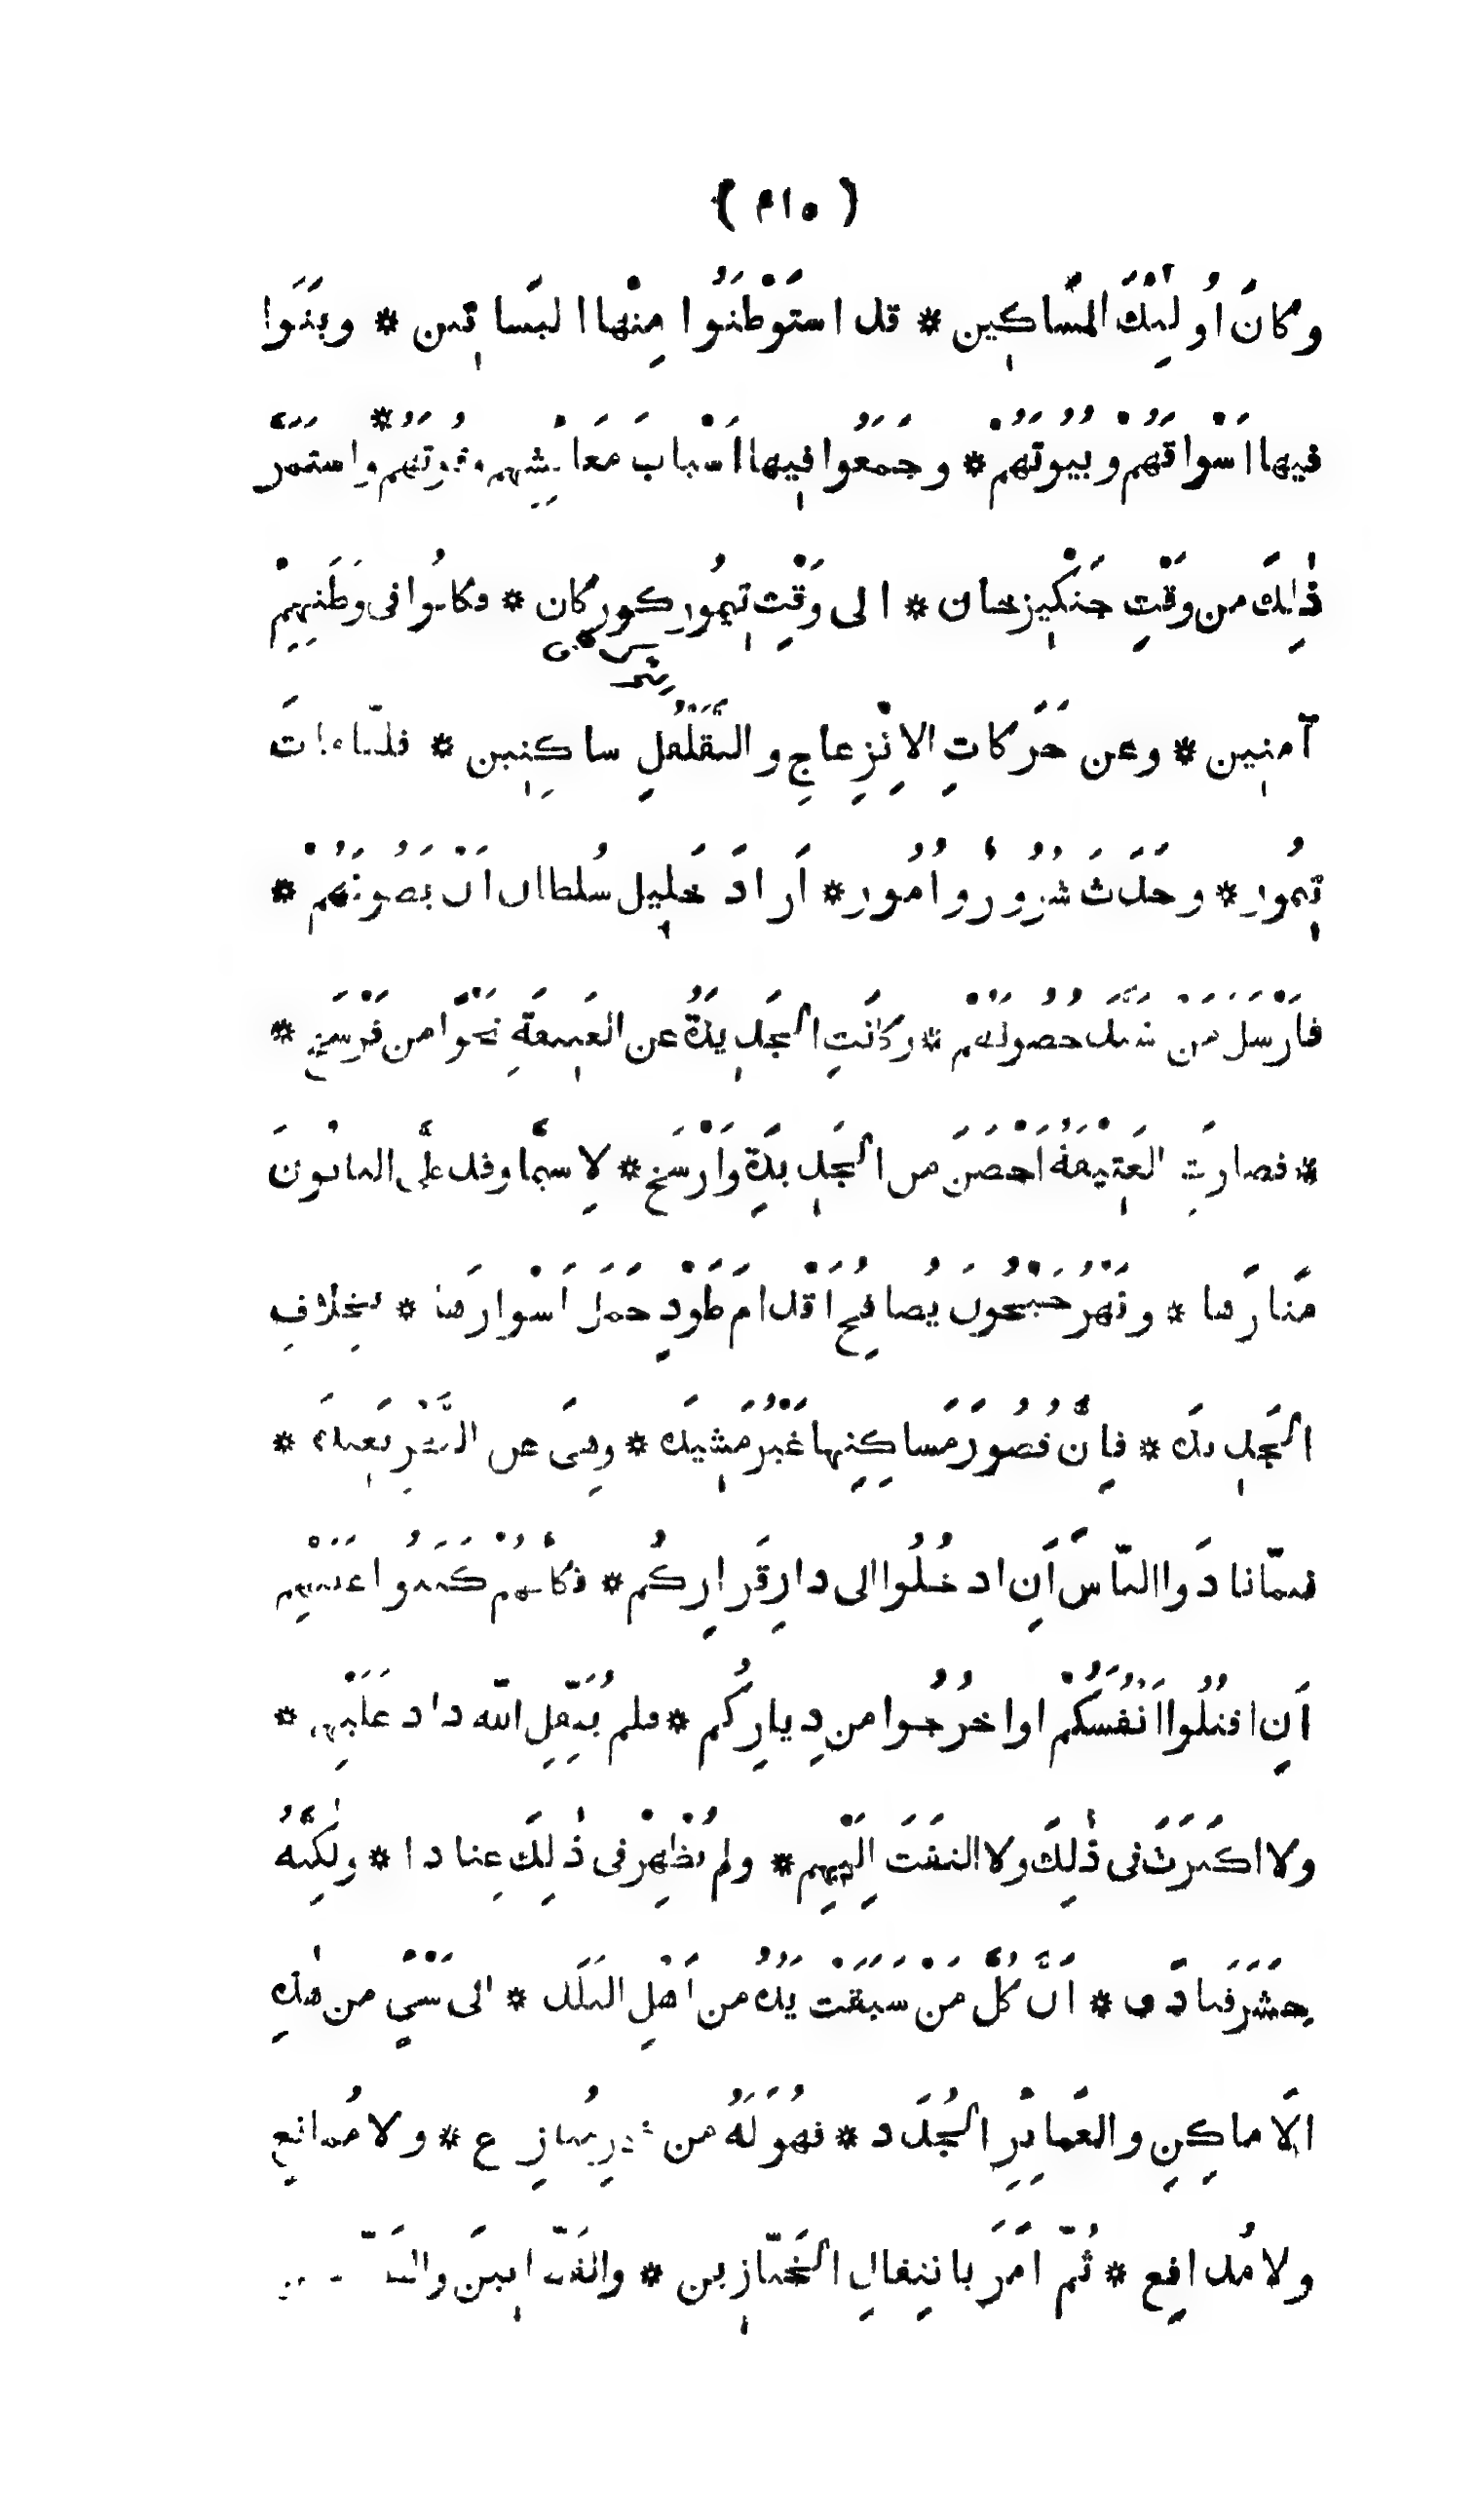 ( ٥١٣ )
وكانَ اُولٰئِكَ المَساكِين * قد استَوْطَنُوا مِنْها البَساتِين * وبَنَوا
فيها اَسْواقَهُم وبُيُوتَهُم * وجَمَعُوا فيها اَسْبابَ مَعايِشِهم وقُوتَهُم * واستَمَرَّ
ذٰلِكَ من وَقْتِ جَنْكِيزخان * الى وَقْتِ تِيمُور كوركان * وكانُوا فى وَطَنِهِمْ
آمنِين * وعن حَرَكاتِ الاِنْزِعاجِ والتَّقَلْقُلِ ساكِنِين * فلمّا ماتَ
تِيمُور * وحَدَثَ شُرُورٌ واُمُور * اَرادَ خَلِيل سُلطان اَنْ يَصُونَهُمْ *
فاَرْسَلَ مَنْ شَيَّدَ حُصُونَهُم * وكانَتِ الجَدِيدَةُ عن العَتِيقَةِ نَحْوًا من فَرْسَخٍ *
* فصارَتِ العَتِيقَةُ اَحْصَنَ من الجَدِيدَةِ واَرْسَخ * لا سِيَّما وقد عَلَى المانُونَ
مَنارَها * ونَهْرُ جَيْحُونَ يُصافِحُ اَقْدامَ طَوْدٍ حَمَلَ اَسْوارَها * بخِلافِ
الجَدِيدَه * فاِنَّ قُصُورَ مَساكِنِها غَيْرُ مَشِيدَه * وهِىَ عن النَّهْرِ بَعِيدَه *
فلمّا نادَوا النّاسَ اَنِ ادخُلُوا الى دارِ قَرارِكُم * فكاَنَّهُمْ كَتَبُوا عَلَيْهِم
اَنِ اقتُلُوا اَنْفُسَكُمْ اواخرُجُوا من دِيارِكُم * فلم يُثَقِّلِ اللّه داد عَلَيْهِم *
ولا اكتَرَثَ فى ذٰلِكَ ولا التفَتَ اِلَيْهِم * ولم يُظهِرْ فى ذٰلِكَ عِنادا * ولٰكِنَّهُ
حَشَرَ فنادَى * اَنَّ كُلَّ مَنْ سَبَقَتْ يَدُهُ من اَهْلِ البَلَد * الى شَىْءٍ من هٰذِهِ
الاَماكِنِ والعَمايِرِ الجُدَد * فهُوَ لَهُ من غيرِ مُنازِع * ولا مُمانِع
ولا مُدافِع * ثُمَّ اَمَرَ بانتِقالِ الخَبّازِين * والقَصّابِينَ